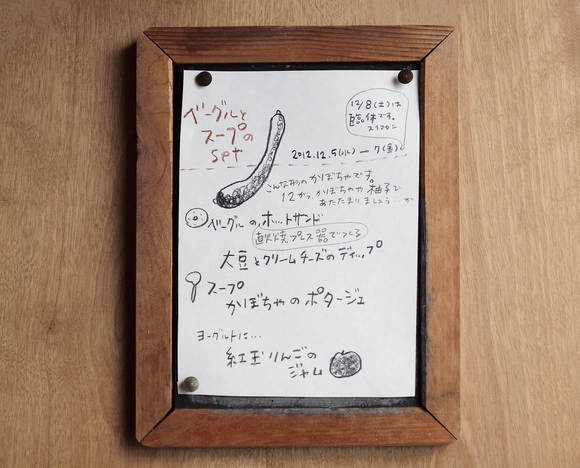 ベーグルと
スープの
set
12/8(土)は
臨休です。
スイマセン
2012.12.5(水)ー7(金)
こんな形のかぼちゃです。
12がつ、かぼちゃや柚子で
あたたまりましょう…か
ベーグルのホットサンド
直火焼プレス器でつくる
大豆とクリームチーズのディップ
スープ
かぼちゃのポタージュ
ヨーグルトに…
紅玉りんごの
ジャム